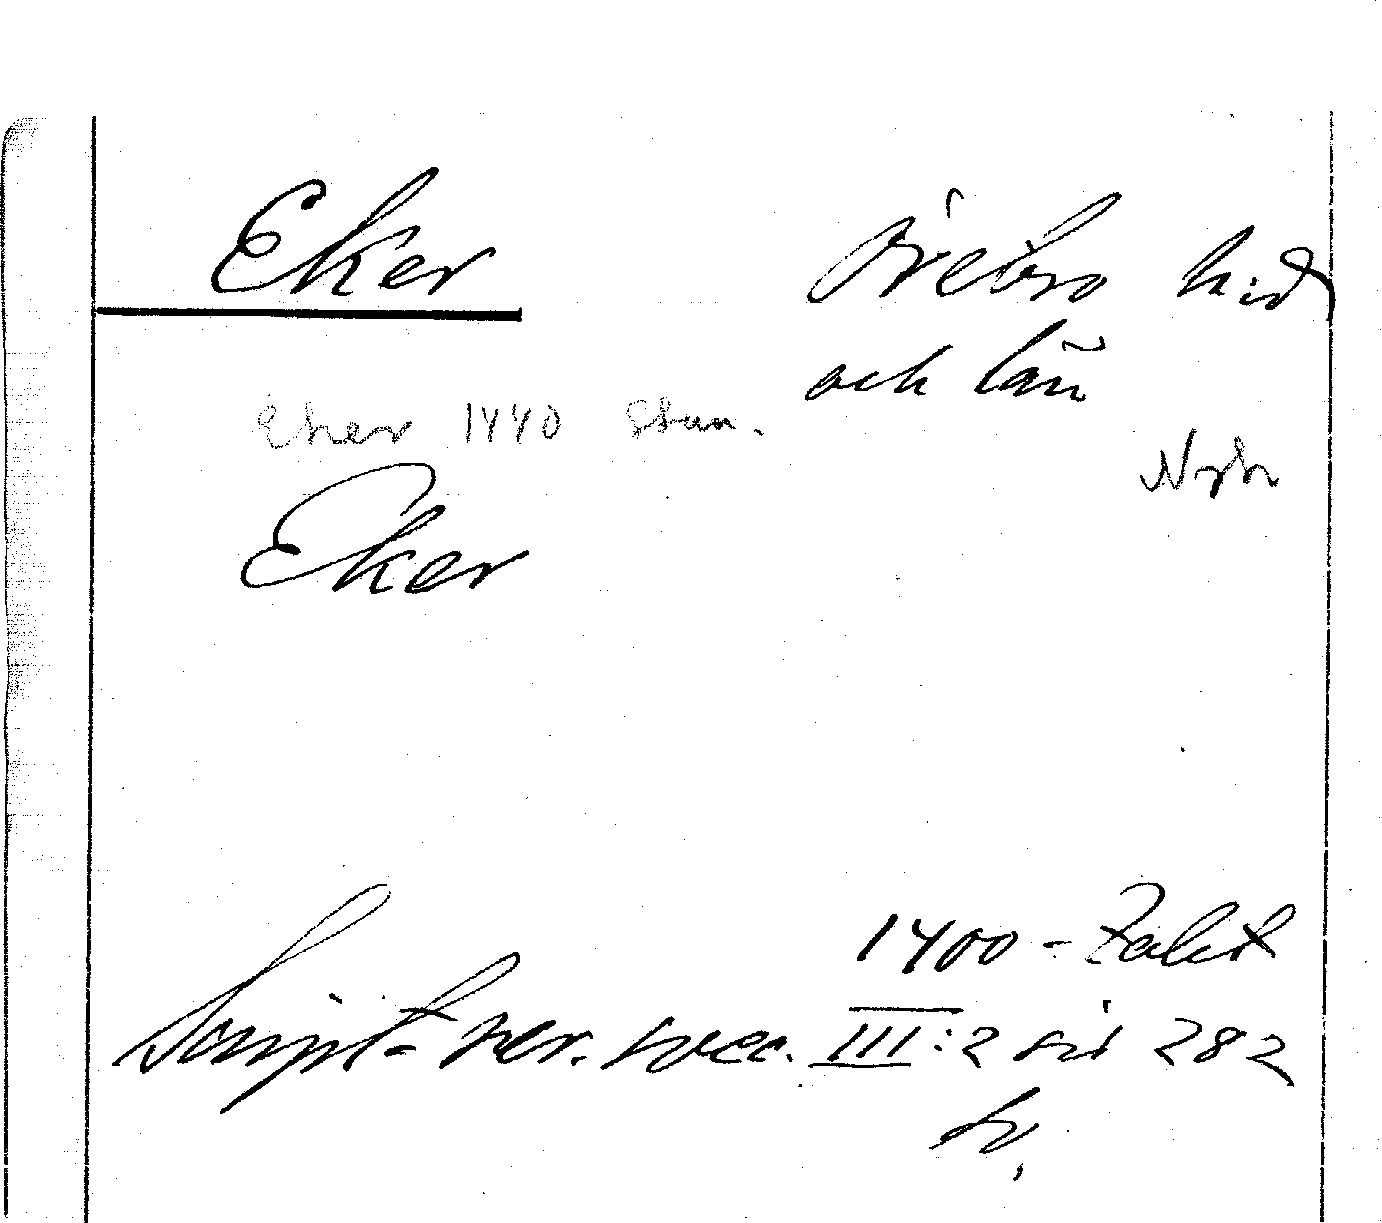 Eker Örebro hd
och län
Eker 1440 Stun.
Nph
Eker
1400-talet
Script. rer. svec. III:2 sid 282